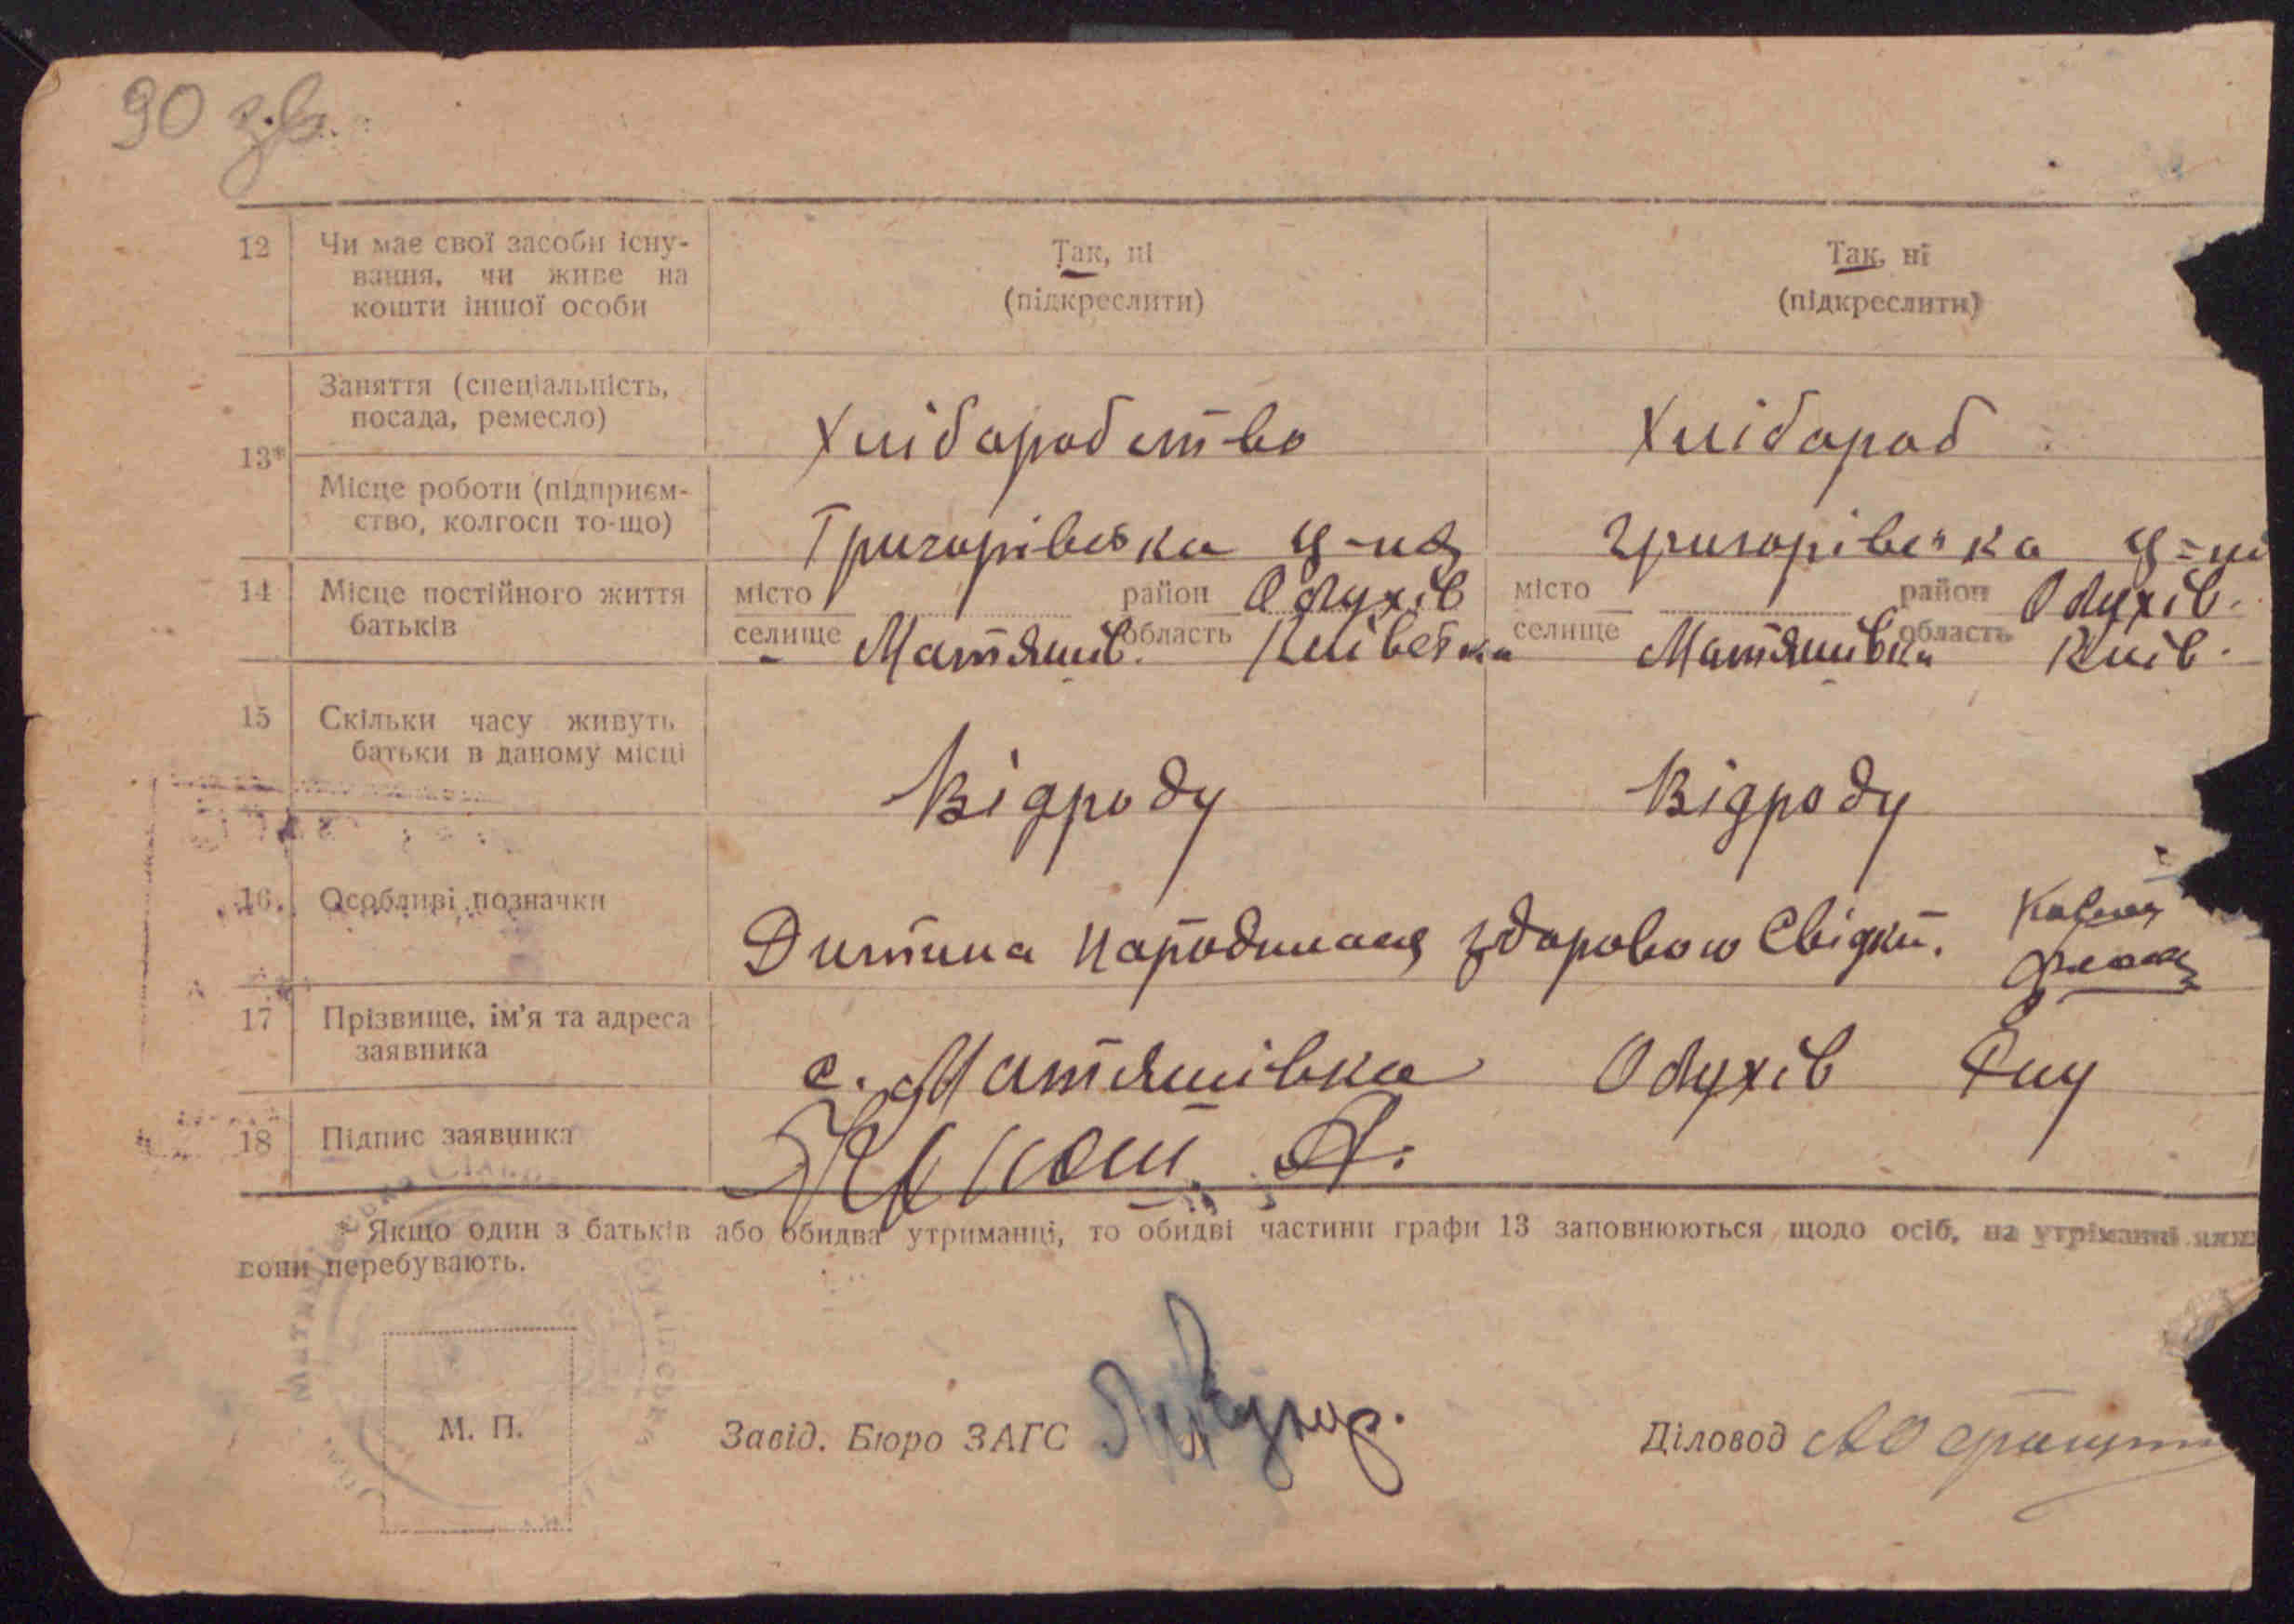 90 зв.
12 Чи має свої засоби існу-
вання, чи живе на
кошти іншої особи
Так, ні
(підкреслити)
Так, ні
(підкреслити)
13*
Заняття (спеціальність,
посада, ремесло)
Хлібаробство
Хлібароб
Місце роботи (підприєм-
ство, колгосп то-що)
Григорівська
Григорівська
14 Місце постійного життя
батьків
місто
селище Матяшів.
район Обухів
область Київська
місто
селище Матяшівка
район Обухів.
область Київ.
15 Скільки часу живуть
батьки в даному місці
Відроду
Відроду
16. Особливі позначки
Дитина народилася здоровою Свідки.
17 Прізвище, ім'я та адреса
заявника
с. Матяшівка Обухів
18 Підпис заявника
* Якщо один з батьків або обидва утриманці, то обидві частини графи 13 заповнюються щодо осіб, на утріманні яких
вони перебувають.
М. П.
Завід. Бюро ЗАГС
Діловод